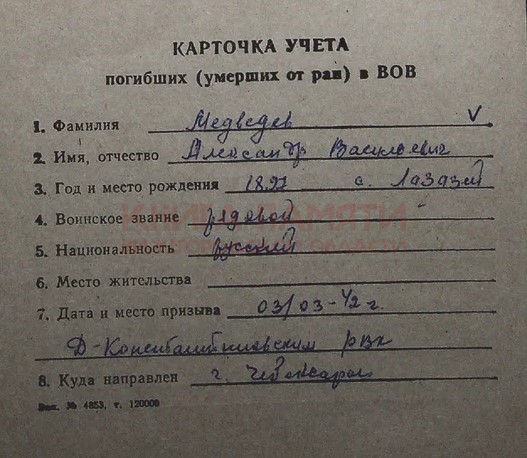 КАРТОЧКА УЧЕТА
погибших (умерших от ран) в ВОВ
1. Фамилия Медведев V
2. Имя, отчество Александр Васильевич
3. Год и место рождения 1897 с. Лазазей
4. Воинское звание рядовой
5. Национальность русский
6. Место жительства
7. Дата и место призыва 03/03-42 г.
Д-Константиновским рвк
8. Куда направлен г. Чебоксары
Зак. № 4853, т. 120000
КНИГА ПАМЯТИ
НИЖЕГОРОДСКОЙ ОБЛАСТИ